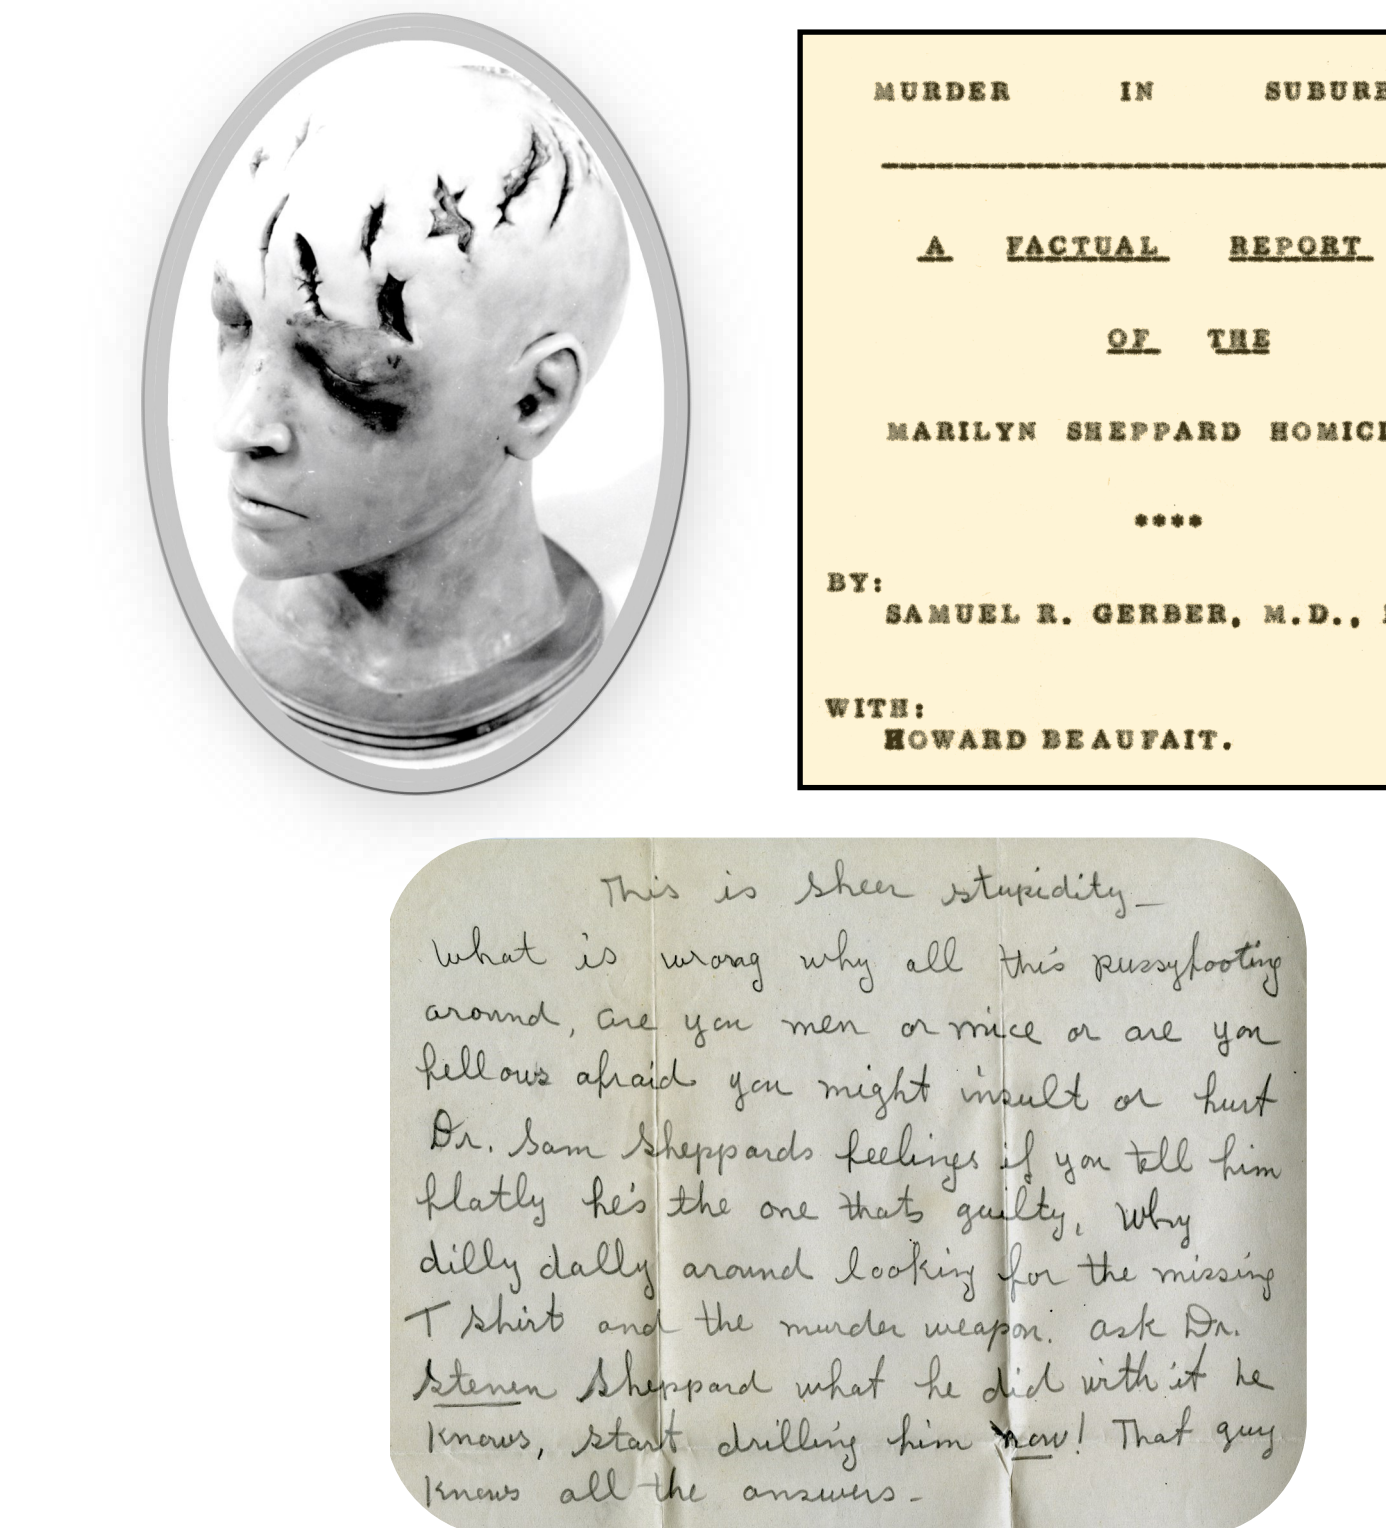 MURDER IN SUBURB
A FACTUAL REPORT
OF THE
MARILYN SHEPPARD HOMICI
****
BY:
SAMUEL R. GERBER, M.D.,
WITH:
HOWARD BEAUFAIT.
This is sheer stupidity—
What is wrong why all this pussyfooting
around, are you men or mice or are you
fellows afraid you might insult or hurt
Dr. Sam Sheppards feelings if you tell him
flatly he's the one thats guilty, Why
dilly dally around looking for the missing
T shirt and the murder weapon. ask Dr.
Steven Sheppard what he did with it he
knows, start drilling him now! That guy
knows all the answers-